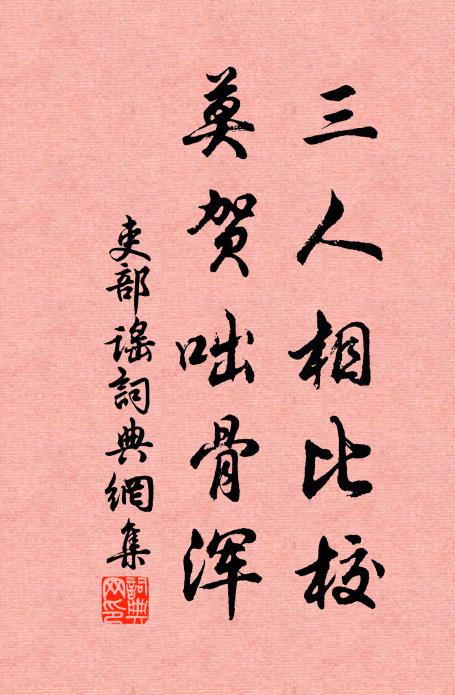 三人相比校
莫贺咄骨浑
吏部謡詞典網集
詞典网印